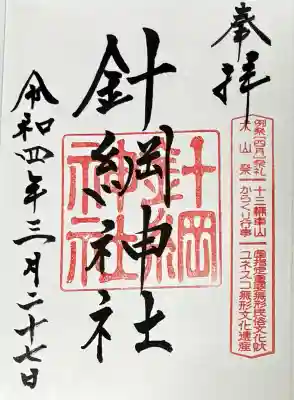 奉拝
例祭【四月】祭礼
犬山祭
十三輌車山
からくり行事
国指定重要無形民俗文化財
ユネスコ無形文化遺産
針綱神社
針綱神社
令和四年三月二十七日